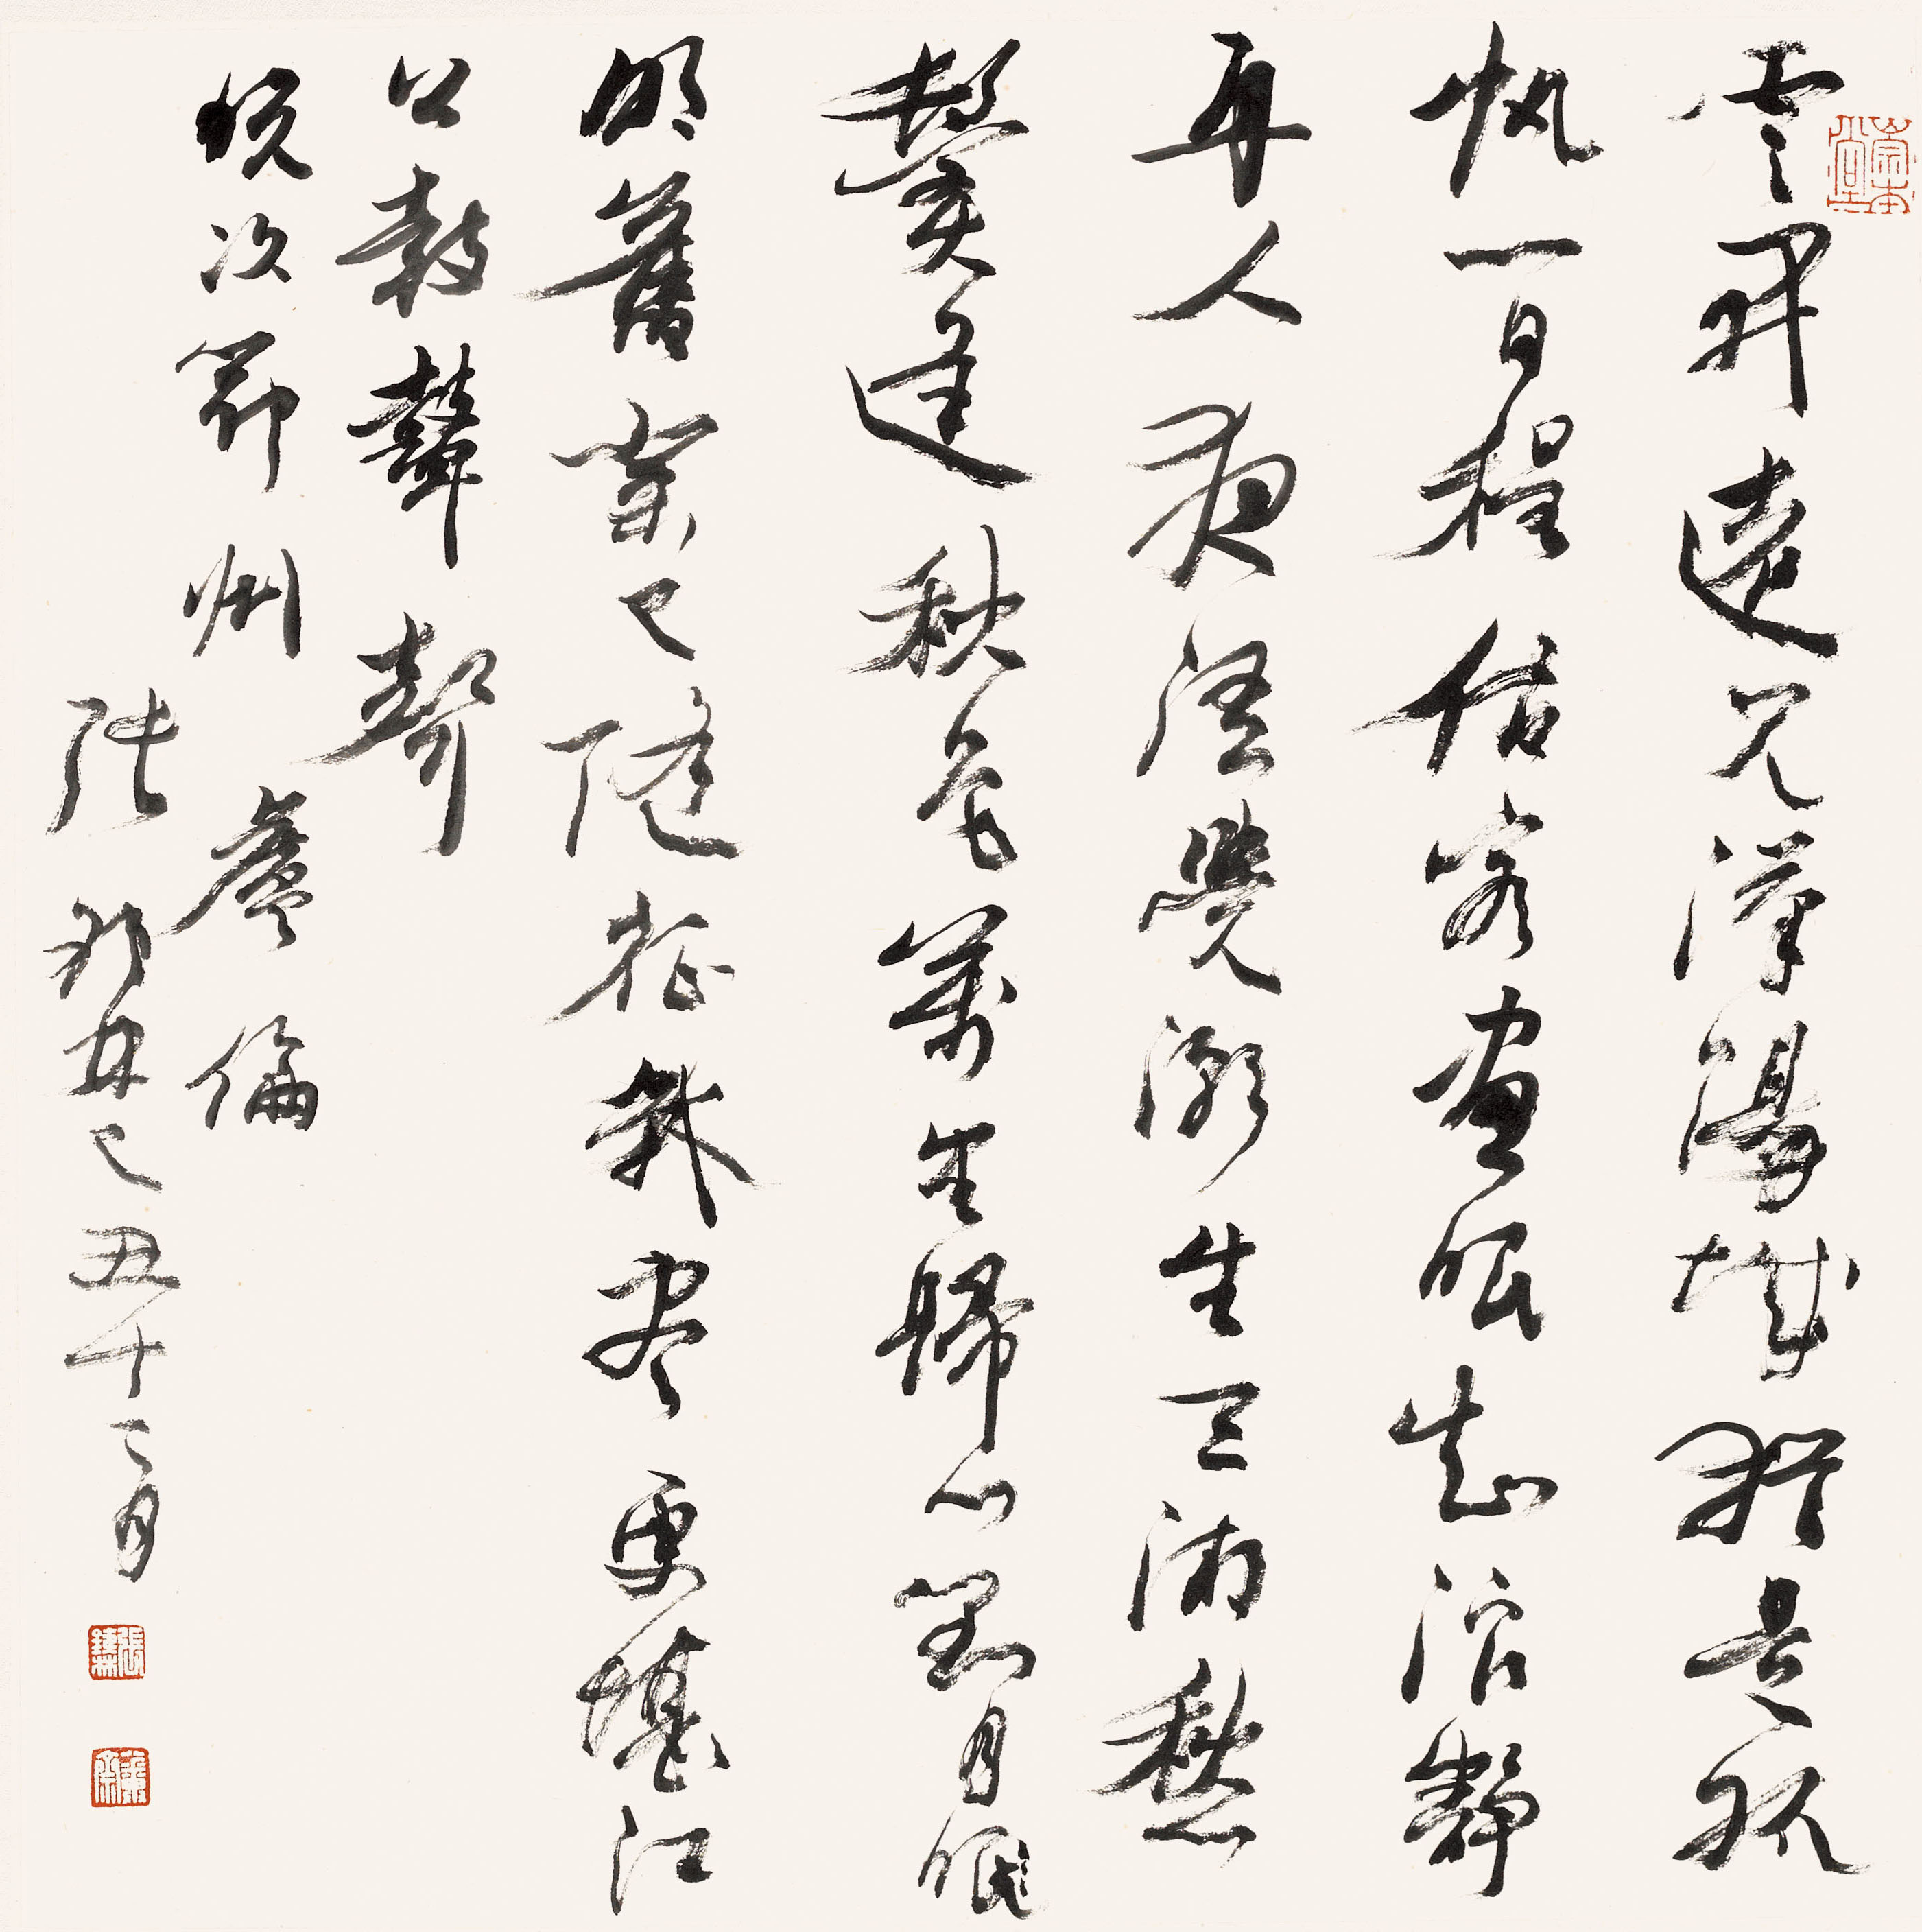 雲開遠見漢陽城猶是孤
帆一日程估客晝眠知浪靜
舟人夜語覺潮生三湘愁
鬢逢秋色萬里歸心對月眠
明舊業已隨征戰盡更堪江
上鼓鼙聲
晚次鄂州 盧倫
張 己丑十二月
崇本堂